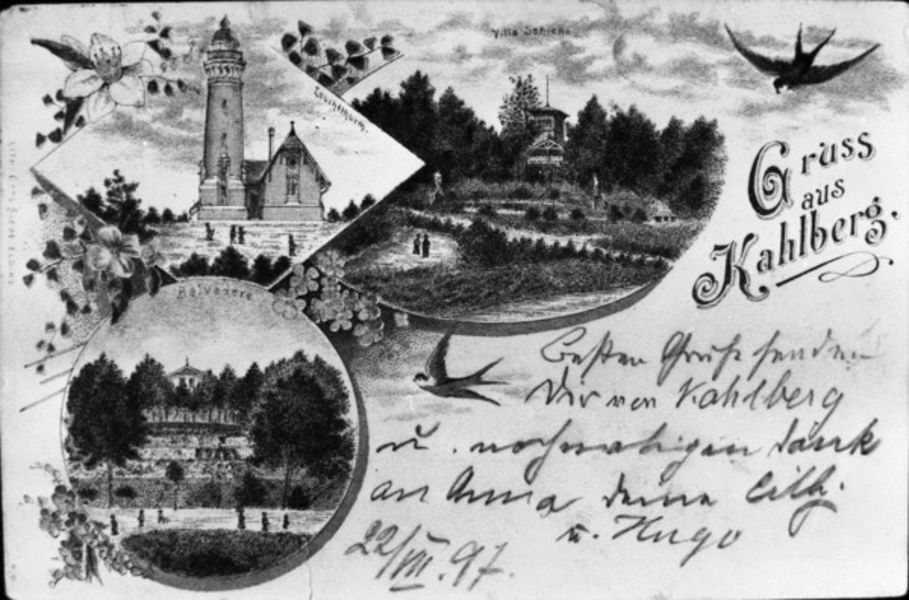 Villa Schichau
Leuchtthurm.
Belvedere
Gruss
aus
Kahlberg.
besten Grüße senden
Dir von Kahlberg
u. nochmaligen Dank
an Anna deine Cilly.
u. Hugo
22/VII. 97.